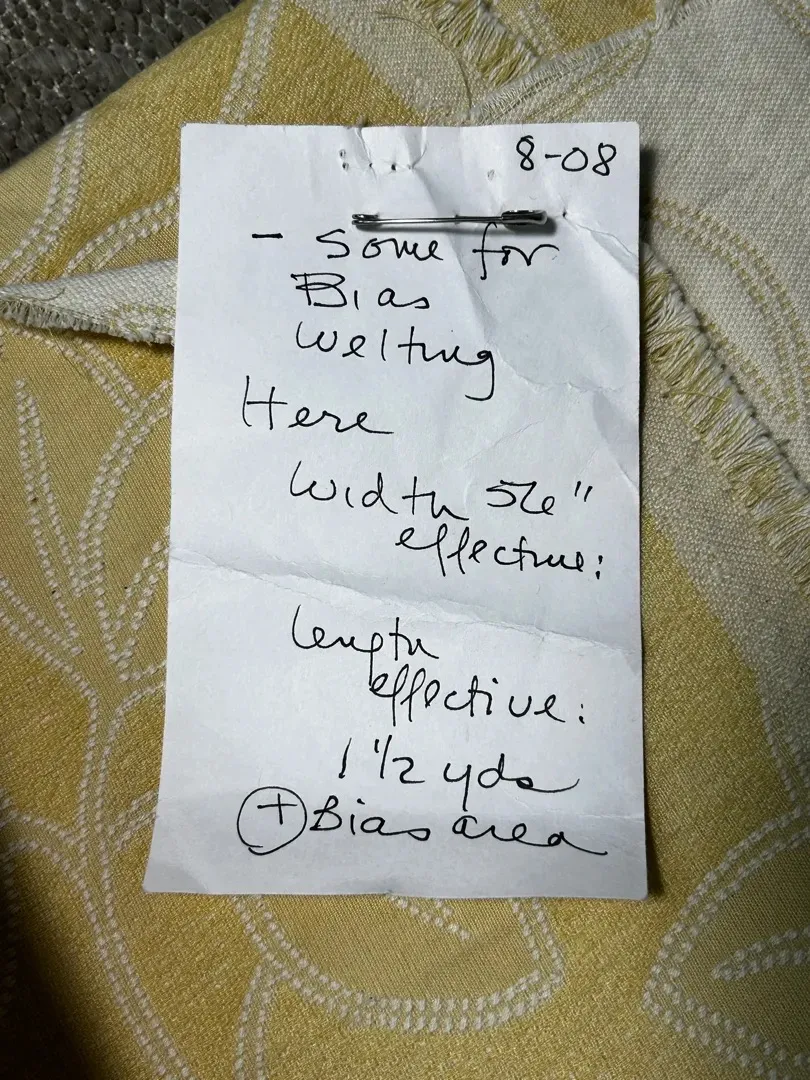 8-08
- Some for
Bias
Welting
Here
Width 56"
effective:
length
effective:
1 1/2 yds
+ Bias area